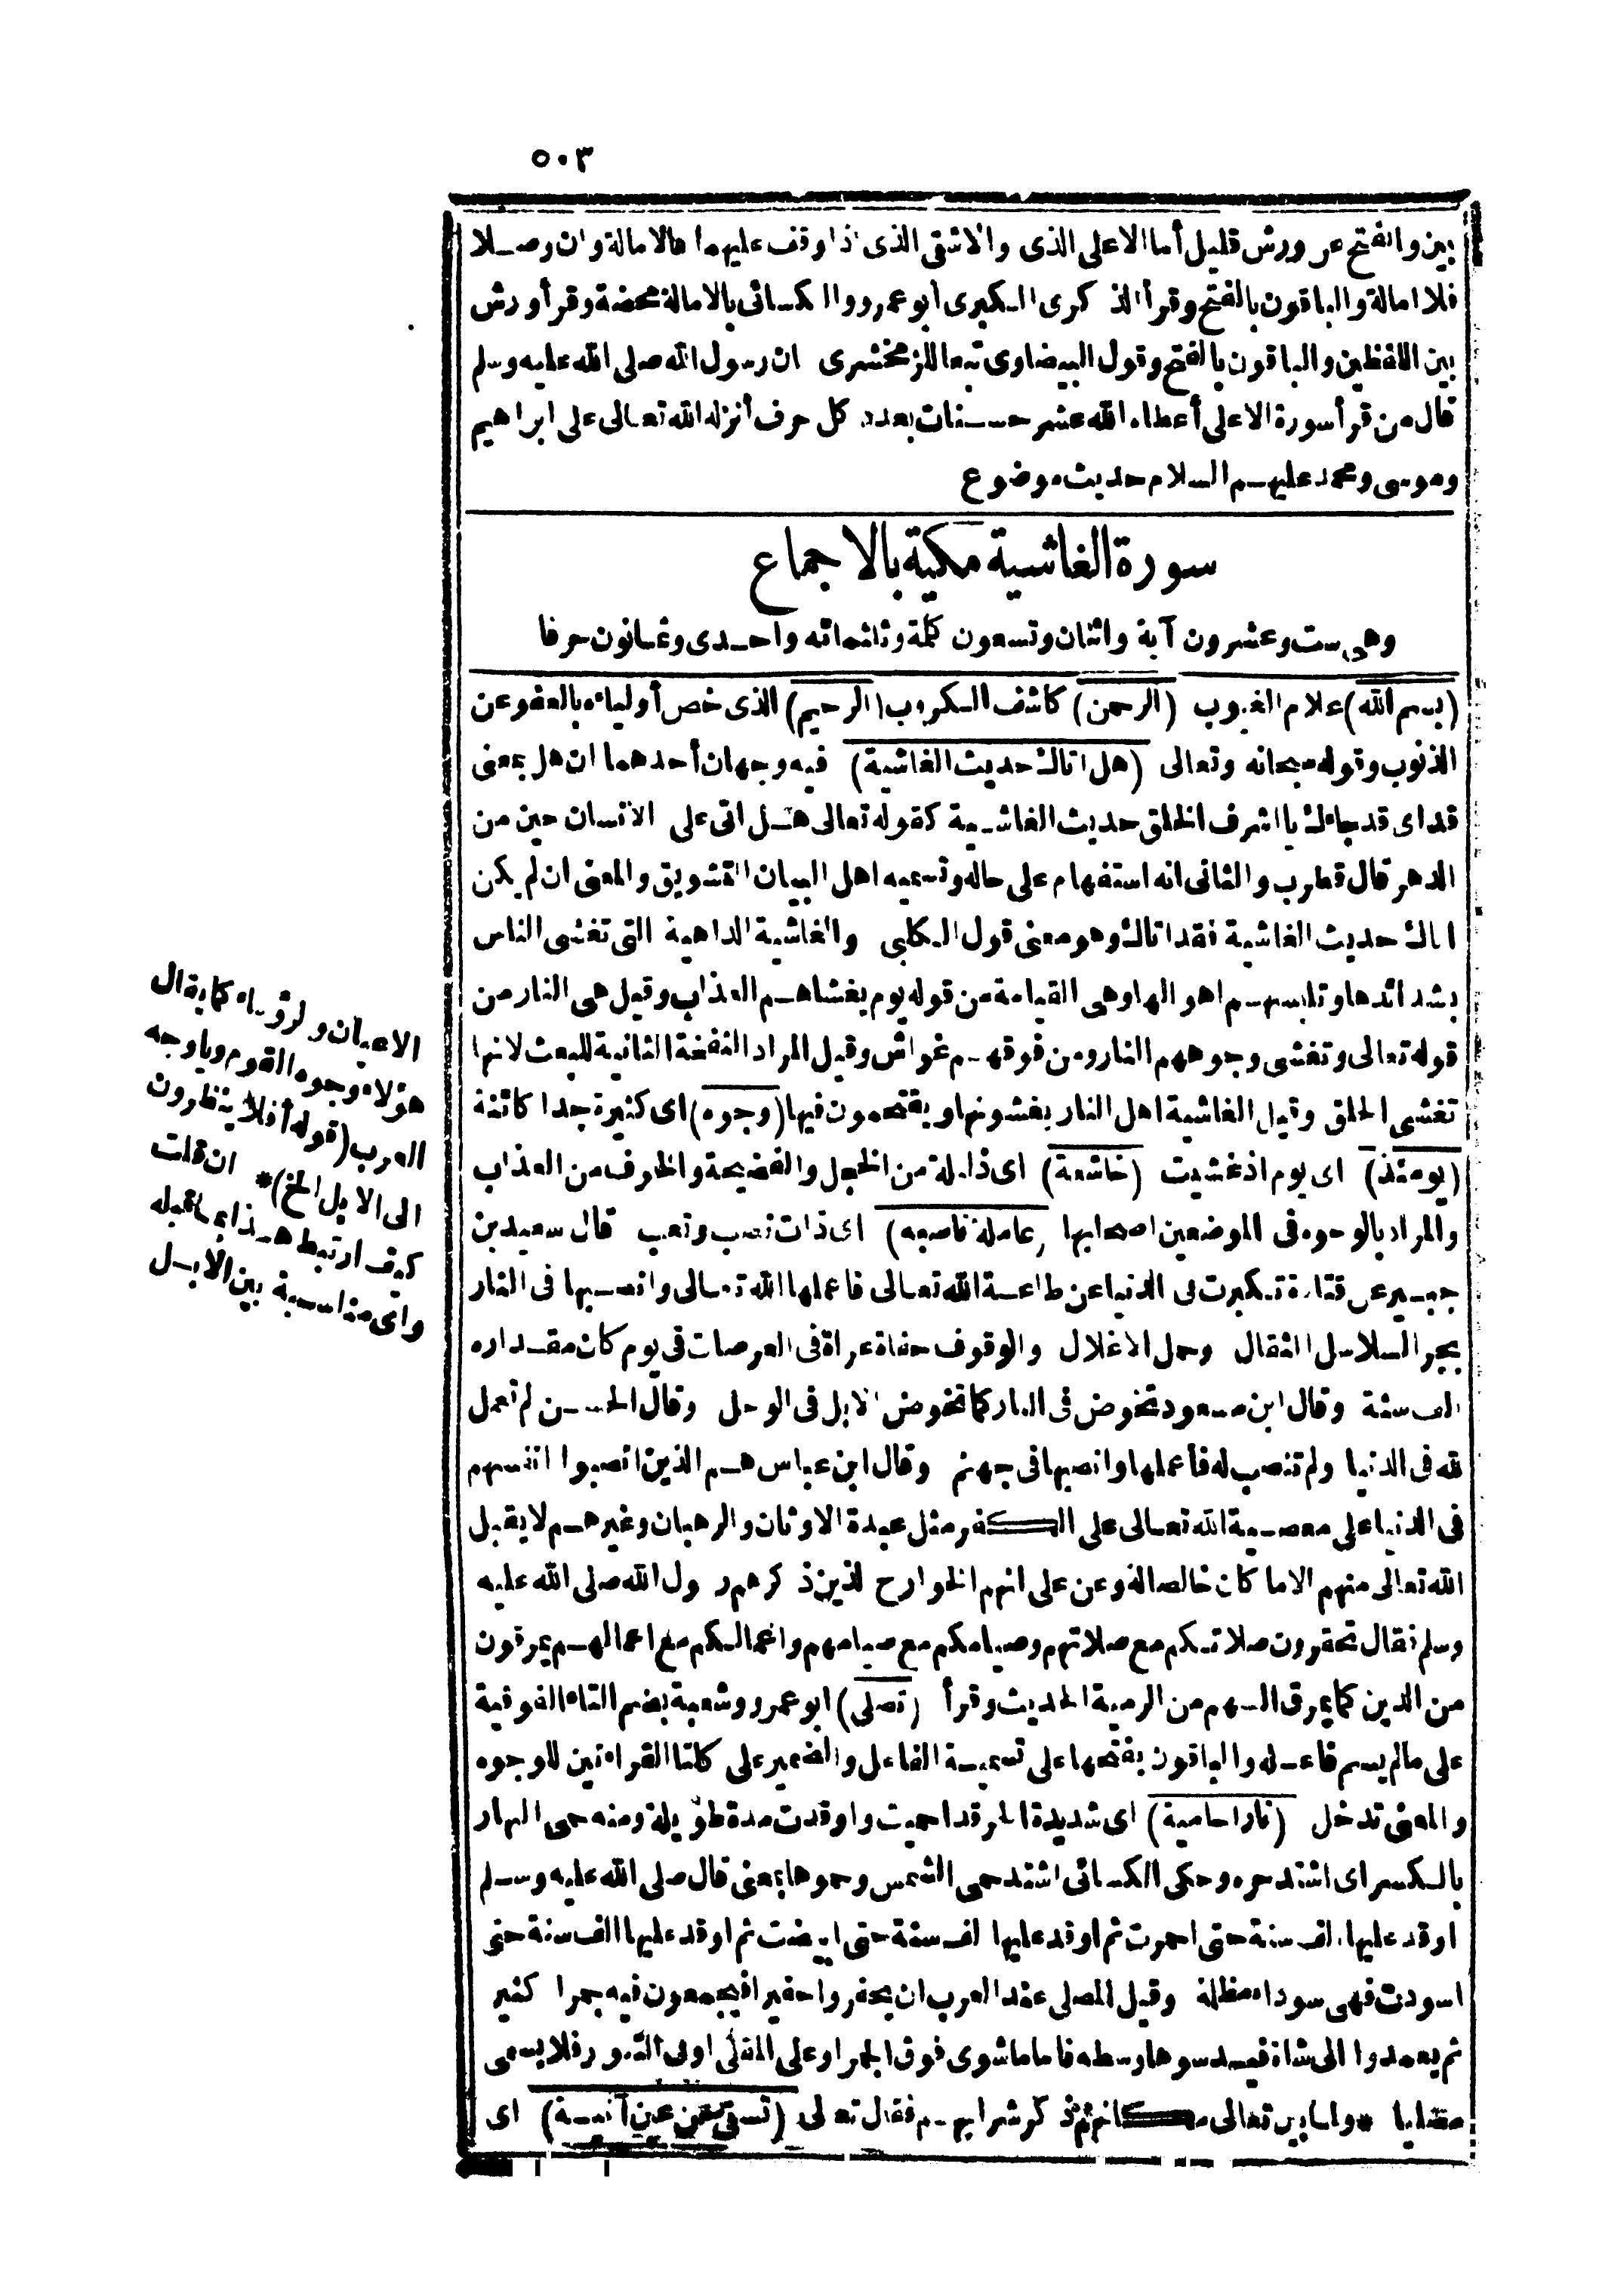 ٥٠٣
بين والفتح عن ورش قليل أما الاعلى الذى والاشقى الذى اذا وقف عليهما فالامالة وان وصلا
فلا امالة والباقون بالفتح وقرأ الذكرى الكبرى أبو عمرو والكسائى بالامالة محضة وقرأ ورش
بين اللفظين والباقون بالفتح وقول البيضاوى تبعا للزمخشرى ان رسول الله صلى الله عليه وسلم
قال من قرأ سورة الاعلى أعطاه الله عشر حسنات بعدد كل حرف أنزله الله تعالى على ابراهيم
وموسى ومحمد عليهم السلام حديث موضوع
سورة الغاشية مكية بالاجماع
وهى ست وعشرون آية واثنان وتسعون كلمة وثلثمائه واحدى وثمانون حرفا
(بسم الله) علام الغيوب (الرحمن) كاشف الكروب (الرحيم) الذى خص أولياءه بالعفو عن
الذنوب وقوله سبحانه وتعالى (هل اتاك حديث الغاشية) فيه وجهان أحدهما ان هل بمعنى
قد اى قد جاءك يا اشرف الخلق حديث الغاشية كقوله تعالى هل اتى على الانسان حين من
الدهر قال قطرب والثانى انه استفهام على حاله وتسميه اهل البيان التشويق والمعنى ان لم يكن
اتاك حديث الغاشية فقد اتاك وهو معنى قول الكلبى والغاشية الداهية التى تغشى الناس
بشدائدها وتلبسهم اهوالها وهى القيامة من قوله يوم يغشاهم العذاب وقيل هى النار من
قوله تعالى وتغشى وجوههم النار ومن فوقهم غواش وقيل المراد النفخة الثانية للبعث لانها
تغشى الخلق وقيل الغاشية اهل النار يغشونها ويقتحمون فيها (وجوه) اى كثيرة جدا كائنة
(يومئذ) اى يوم اذ غشيت (خاشعة) اى ذليلة من الخجل والفضيحة والخوف من العذاب
والمراد بالوجوه فى الموضعين اصحابها (عاملة ناصبه) اى ذات نصب وتعب قال سعيد بن
جبير عن قتادة تكبرت فى الدنيا عن طاعة الله تعالى فاعملها الله تعالى وانصبها فى النار
بجر السلاسل الثقال وحمل الاغلال والوقوف حفاة عراة فى العرصات فى يوم كان مقداره
الف سنة وقال ابن مسعود تخوض فى النار كما تخوض الابل فى الوحل وقال الحسن لم تعمل
لله فى الدنيا ولم تنصب له فأعملها وانصبها فى جهنم وقال ابن عباس هم الذين انصبوا انفسهم
فى الدنيا على معصية الله تعالى على الكفر مثل عبدة الاوثان والرهبان وغيرهم لا يقبل
الله تعالى منهم الا ما كان خالصا له وعن على انهم الخوارج الذين ذكرهم رسول الله صلى الله عليه
وسلم فقال تحقرون صلاتكم مع صلاتهم وصيامكم مع صيامهم واعمالكم مع اعمالهم يمرقون
من الدين كما يمرق السهم من الرمية الحديث وقرأ (تصلى) ابو عمرو وشعبة بضم التاء الفوقية
على مالم يسم فاعله والباقون بفتحها على تسمية الفاعل والضمير على كلتا القراءتين للوجوه
والمعنى تدخل (نارا حامية) اى شديدة الحر قد احميت واوقدت مدة طويلة ومنه حمى النهار
بالكسر اى اشتد حره وحكى الكسائى اشتد حمى الشمس وحموها بمعنى قال صلى الله عليه وسلم
اوقد عليها الف سنة حتى احمرت ثم اوقد عليها الف سنة حتى ابيضت ثم اوقد عليها الف سنة حتى
اسودت فهى سوداء مظلمة وقيل المصلى عند العرب ان يحفروا حفيرا فيجمعون فيه جمرا كثير
ثم يعمدوا الى شاة فيدسوها وسطه فاما ما شوى فوق الجمر او على المقلى او فى التنور فلا يسمى
مصليا * ولما بين تعالى مكانهم ذكر شرابهم فقال تعالى (تسقى من عين آنية) اى
الاعيان والرؤساء كما يقال
هؤلاء وجوه القوم ويا وجه
العرب (قوله أفلا ينظرون
الى الابل الخ)* ان قلت
كيف ارتبط هذا بما قبله
واى مناسبة بين الابل